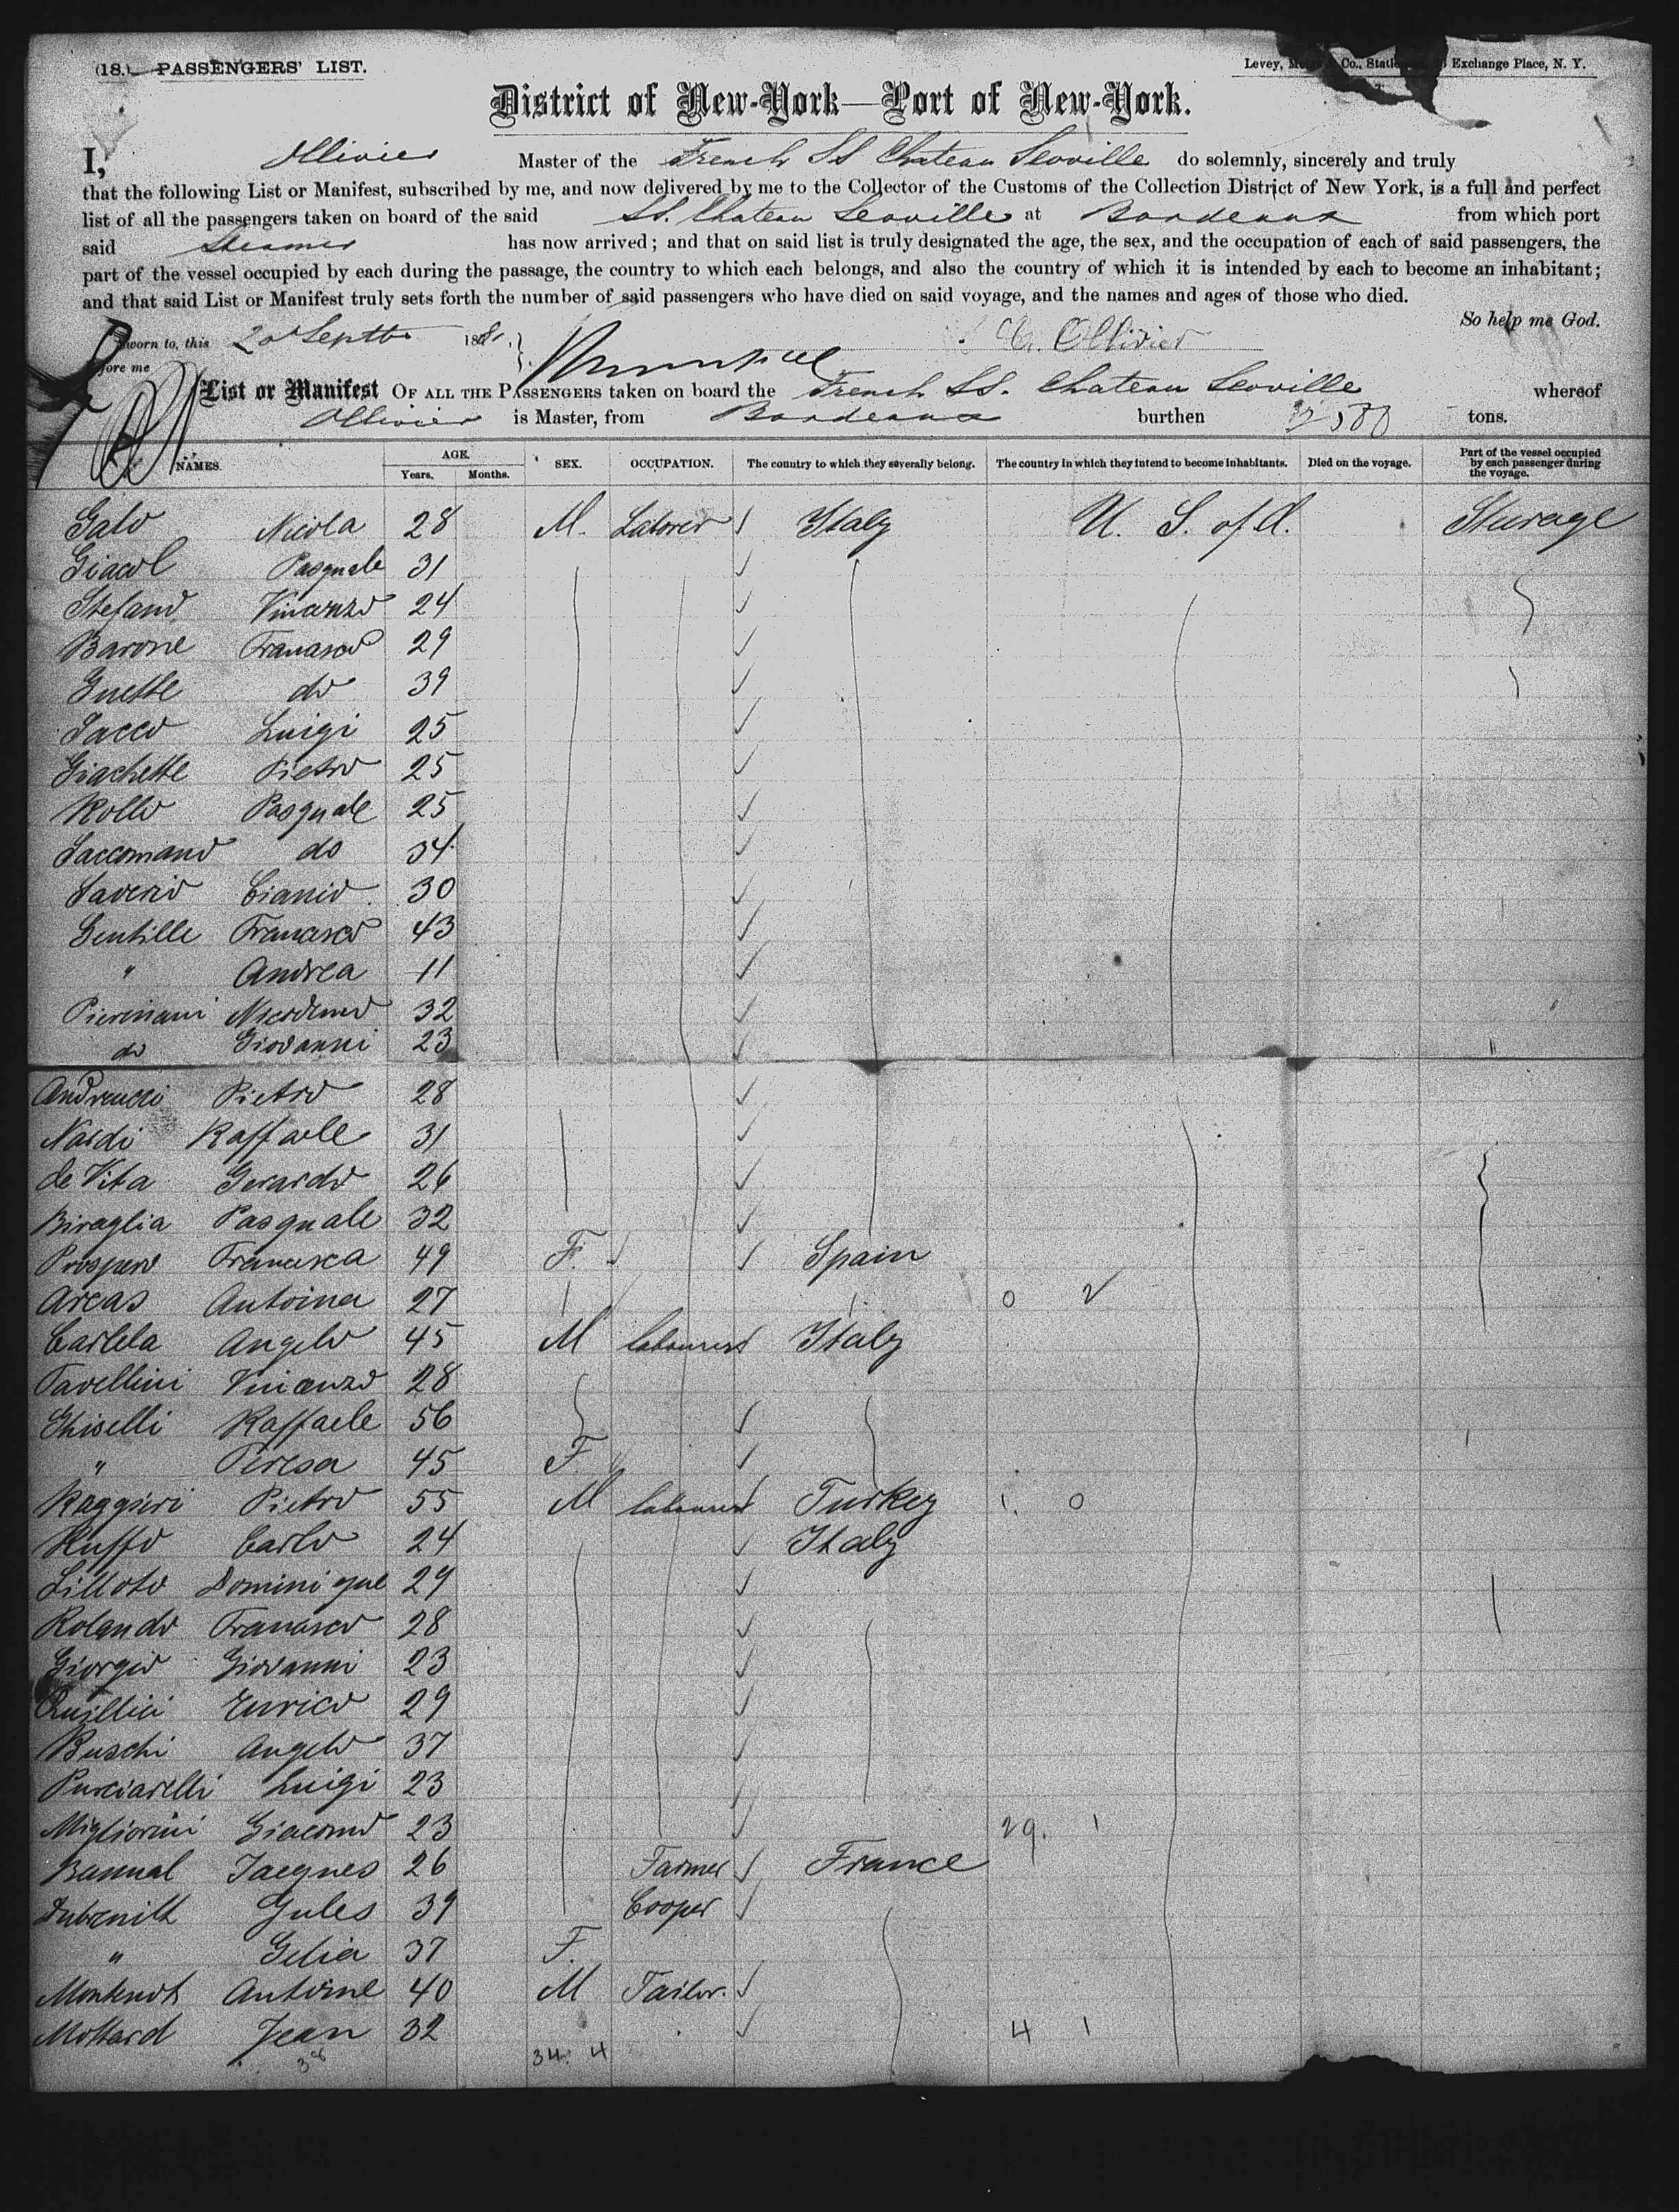 (18.) PASSENGERS' LIST.
Levey, Co., Exchange Place, N. Y.
District of New-York—Port of New-York.
I, Ollivier Master of the French SS Chateau Leoville do solemnly, sincerely and truly
that the following List or Manifest, subscribed by me, and now delivered by me to the Collector of the Customs of the Collection District of New York, is a full and perfect
list of all the passengers taken on board of the said SS. Chateau Leoville at Bordeaux from which port
said Steamer has now arrived; and that on said list is truly designated the age, the sex, and the occupation of each of said passengers, the
part of the vessel occupied by each during the passage, the country to which each belongs, and also the country of which it is intended by each to become an inhabitant;
and that said List or Manifest truly sets forth the number of said passengers who have died on said voyage, and the names and ages of those who died.
So help me God.
Sworn to, this 20 Septbr 1881.
Ollivier
fore me
List or Manifest OF ALL THE PASSENGERS taken on board the French SS. Chateau Leoville whereof
Ollivier is Master, from Bordeaux burthen 2500 tons.
NAMES. AGE. Years. Months. SEX. OCCUPATION. The country to which they severally belong. The country in which they intend to become inhabitants. Died on the voyage. Part of the vessel occupied by each passenger during the voyage.
Galo Nicola 28 M. Laborer Italy U. S. of A. Steerage
Giacol Pasquale 31
Stefano Vincenzo 24
Barone Francesco 29
Guette do 39
Sacco Luigi 25
Giachette Pietro 25
Rollo Pasquale 25
Saccomano do 34
Saverio Cianio 30
Gentille Francesco 43
" Andrea 11
Pierinani Nicodemo 32
do Giovanni 23
Andreucci Pietro 28
Nardi Raffaele 31
de Vita Gerardo 26
Biraglia Pasquale 32
Prospero Francesca 49 F. Spain
Arcas Antoina 27 0 2
Carlela Angelo 45 M labourers Italy
Tavellini Vincenzo 28
Ghiselli Raffaele 56
" Teresa 45 F
Raggieri Pietro 55 M labourer Turkey 1. 0
Ruffo Carlo 24 Italy
Lilloto Dominique 29
Rolando Francesco 28
Giorgio Giovanni 23
Quillici Enrico 29
Buschi Angelo 37
Purciarelli Luigi 23
Migliorini Giacomo 23 29. 1
Bannal Jacques 26 Farmer France
Jules 39 Cooper
" Gelia 37 F.
Antoine 40 M Tailor.
Mottard Jean 32 4 1
38 34. 4